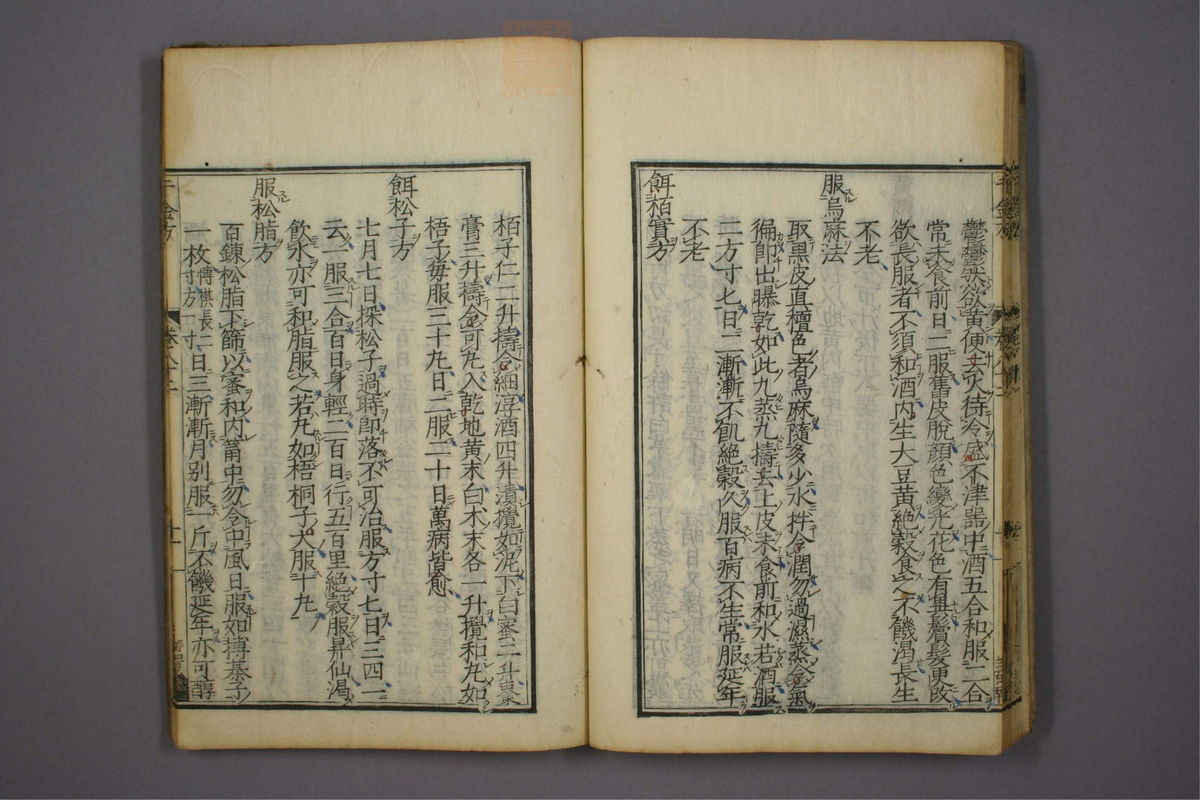 欝欝然欲黄便去火待冷盛不津噐中酒五合和服二合
常未食前日二服舊皮脫顔色變光花色有異鬢髮更改
欲長服者不須和酒内生大豆黄絶穀食之不饑渇長生
不老
服烏麻法
取黒皮真檀色者烏麻隨多少水拌令潤勿過濕蒸令氣
徧即出曝乾如此九蒸九擣去上皮未食前和水若酒服
二方寸七日二漸漸不飢絶穀久服百病不生常服延年
不老
餌栢實方
栢子仁二升擣令細淳酒四升漬攪如泥下白蜜二升棗
膏三升擣令可丸入乾地黄末白木末各一升攪和丸如
梧子毎服三十丸日二服二十日萬病皆愈
餌松子方
七月七日採松子過時即落不可治服方寸七日三四一
云一服三合百日身輕二百日行五百里絶穀服昇仙渇
飲水亦可和脂服之若丸如梧桐子大服十丸
服松脂方
百鍊松脂下篩以蜜和内筩中勿令中風日服如摶棊子
一枚慱棋長二寸方一寸日三漸漸月别服一斤不饑延年亦可醇
千金方